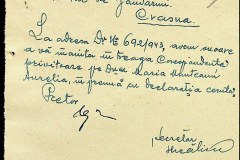 de Jandarmi
Crasna
La adresa Dv № 692/943, avem onoare
a vă înainta în treaga Corespondență
privitoare pe D-na Maria Munteanu
Aurelia, împreună cu declarația comisă,
Pretor
Secretar